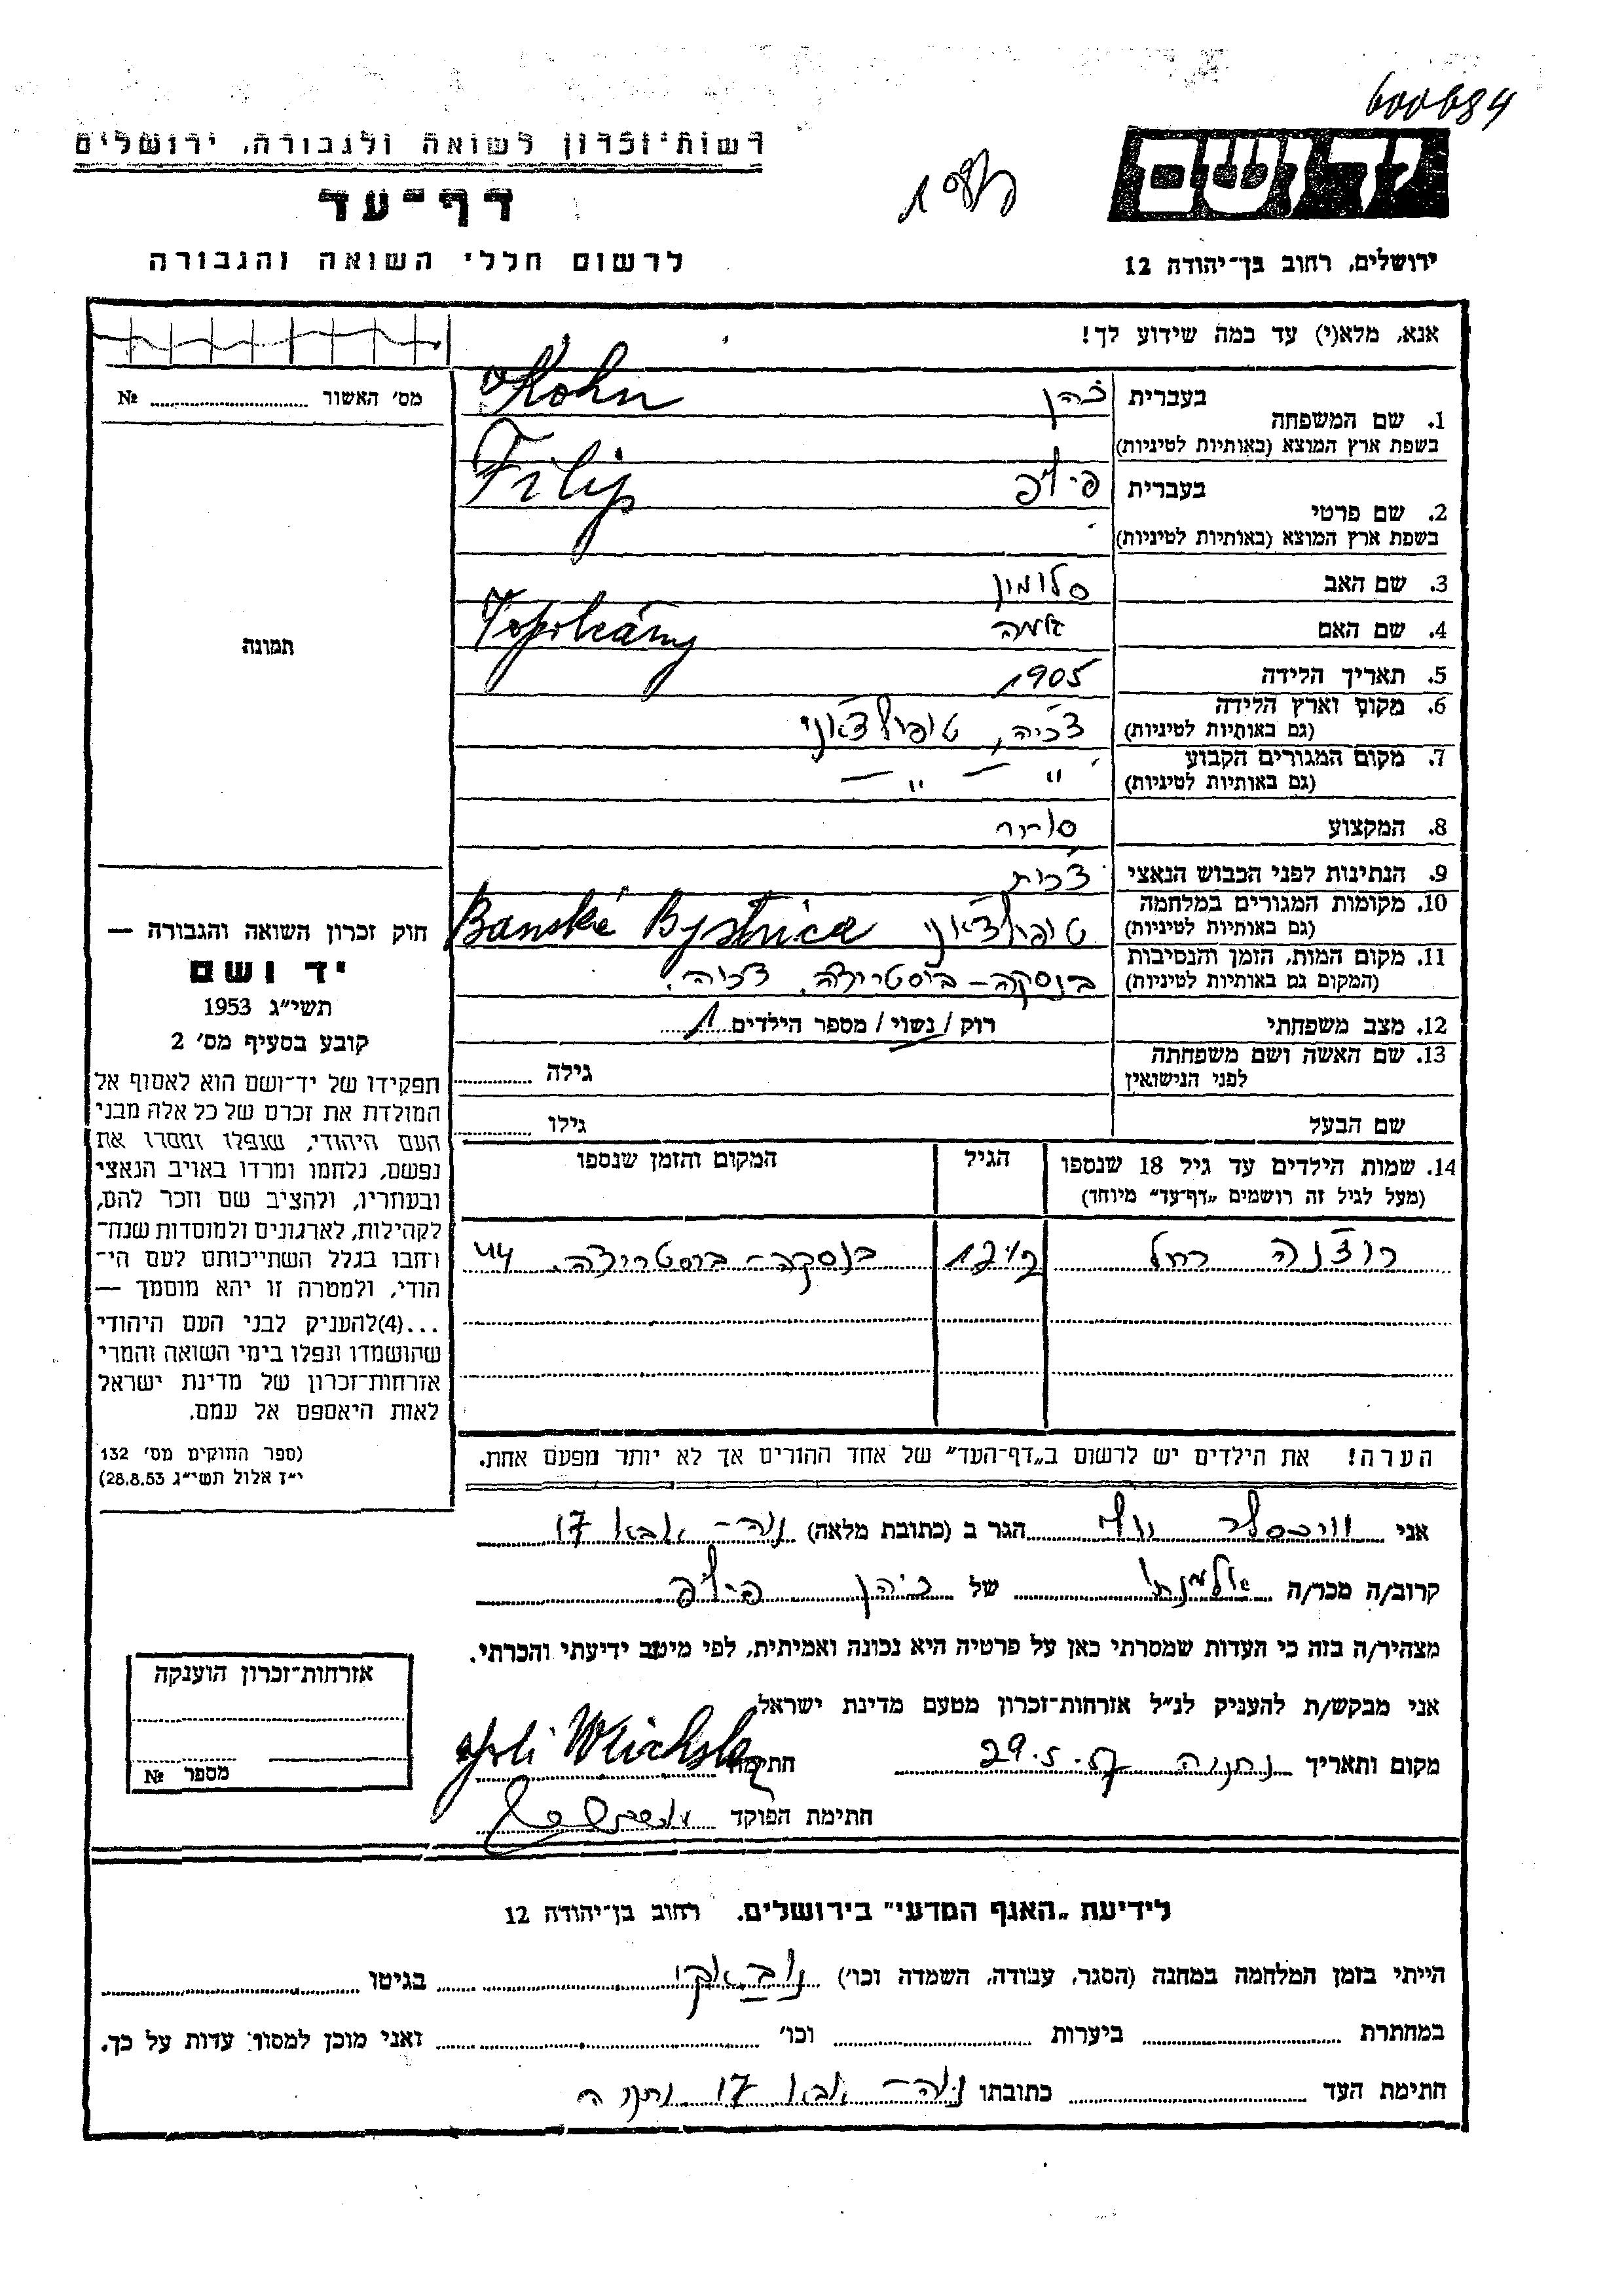 600684
רשות־זכרון לשואה ולגבורה, ירושלים
יד ושם
דף־עד
לרשום חללי השואה והגבורה
ירושלים, רחוב בן־יהודה 12
אנא, מלא(י) עד כמה שידוע לך!
מס׳ האשור № 
בעברית כהן Kohn
1. שם המשפחה
בשפת ארץ המוצא (באותיות לטיניות)
בעברית פיליפ Filip
2. שם פרטי
בשפת ארץ המוצא (באותיות לטיניות)
3. שם האב סלומון
4. שם האם Topolčány
5. תאריך הלידה 1905
6. מקום וארץ הלידה צ'כיה, טופולצ'אני
(גם באותיות לטיניות)
7. מקום המגורים הקבוע — " — " —
(גם באותיות לטיניות)
8. המקצוע סוחר
9. הנתינות לפני הכבוש הנאצי צ'כית
10. מקומות המגורים במלחמה טופולצ'אני Banská Bystrica
(גם באותיות לטיניות)
11. מקום המות, הזמן והנסיבות בנסקה־ביסטריצה, צ'כיה.
(המקום גם באותיות לטיניות)
12. מצב משפחתי רוק / נשוי / מספר הילדים 1
13. שם האשה ושם משפחתה לפני הנישואין גילה
שם הבעל גילו
14. שמות הילדים עד גיל 18 שנספו הגיל המקום והזמן שנספו
(מעל לגיל זה רושמים „דף־עד" מיוחד)
רחל 12½ בנסקה־ביסטריצה, 44
הערה! את הילדים יש לרשום ב„דף־העד" של אחד ההורים אך לא יותר מפעם אחת.
תמונה
חוק זכרון השואה והגבורה —
יד ושם
תשי״ג 1953
קובע בסעיף מס׳ 2
תפקידו של יד־ושם הוא לאסוף אל
המולדת את זכרם של כל אלה מבני
העם היהודי, שנפלו ומסרו את
נפשם, נלחמו ומרדו באויב הנאצי
ובעוזריו, ולהציב שם וזכר להם,
לקהילות, לארגונים ולמוסדות שנח־
רבו בגלל השתייכותם לעם הי־
הודי, ולמטרה זו יהא מוסמך —
...(4)להעניק לבני העם היהודי
שהושמדו ונפלו בימי השואה והמרי
אזרחות־זכרון של מדינת ישראל
לאות היאספם אל עמם.
(ספר החוקים מס׳ 132
י״ז אלול תשי״ג 28.8.53)
אני וייכסלר הגר ב (כתובת מלאה) אבא 17
קרוב/ה מכר/ה של כהן פיליפ
מצהיר/ה בזה כי העדות שמסרתי כאן על פרטיה היא נכונה ואמיתית, לפי מיטב ידיעתי והכרתי.
אני מבקש/ת להעניק לנ״ל אזרחות־זכרון מטעם מדינת ישראל
מקום ותאריך נתניה 29.5.57 חתימה Weichsler
חתימת הפוקד
אזרחות־זכרון הוענקה
מספר №
לידיעת „האגף המדעי" בירושלים, רחוב בן־יהודה 12
הייתי בזמן המלחמה במחנה (הסגר, עבודה, השמדה וכו׳) נובאקי בגיטו
במחתרת ביערות וכו׳ ואני מוכן למסור עדות על כך.
חתימת העד כתובתו אבא 17 נתניה